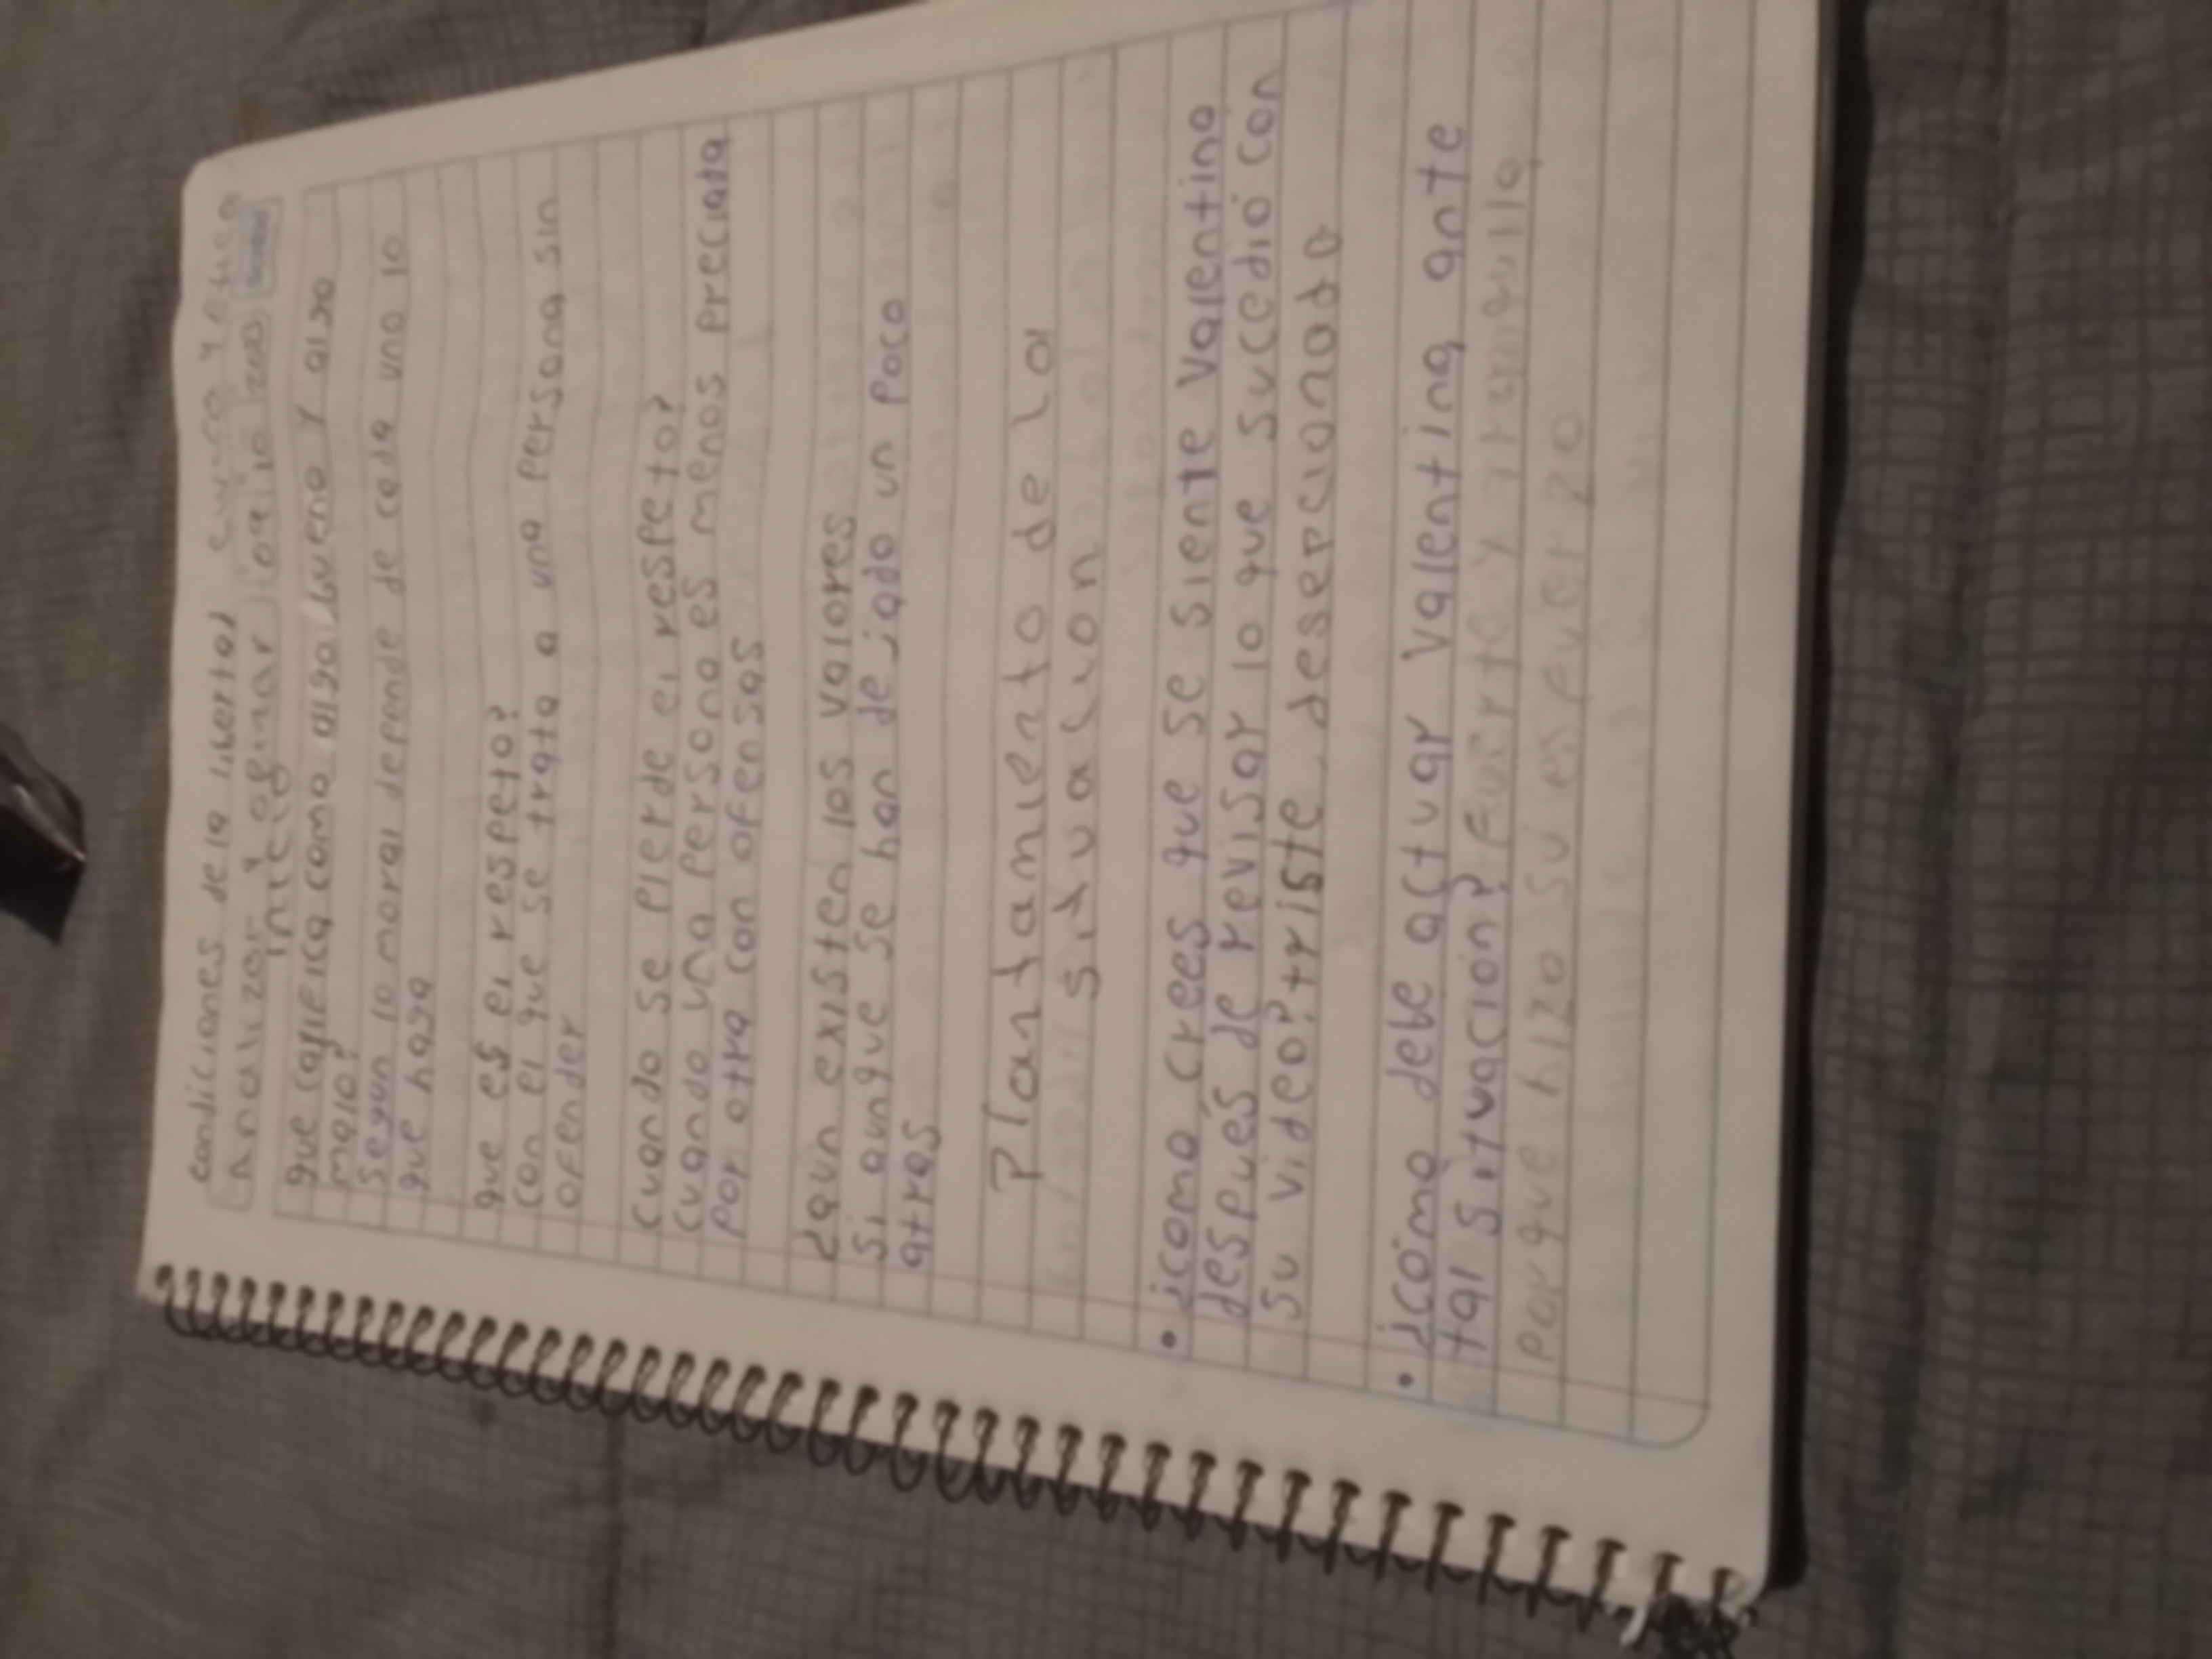 condiciones de la libertad civica y etica
Analizar y opinar 09/10/200
inicio
que califica como algo bueno y algo
malo?
segun lo moral depende de cada uno lo
que haga
que es el respeto?
con el que se trata a una persona sin
ofender
Cuando se pierde el respeto?
Cuando una persona es menos preciada
por otra con ofensas
¿aun existen los valores
Si aunque se han dejado un poco
atras
Plantamiento de la
situacion
• ¿como crees que se siente Valentina
después de revisar lo que sucedió con
su video? triste, desepcionada
• ¿cómo debe actuar Valentina ante
tal situación? Fuerte y tranquila,
porque hizo su esfuerzo